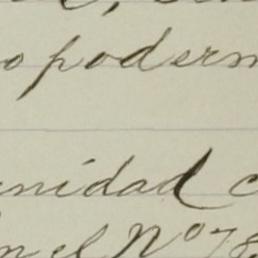 o poderm
nidad c
n el Nº 78